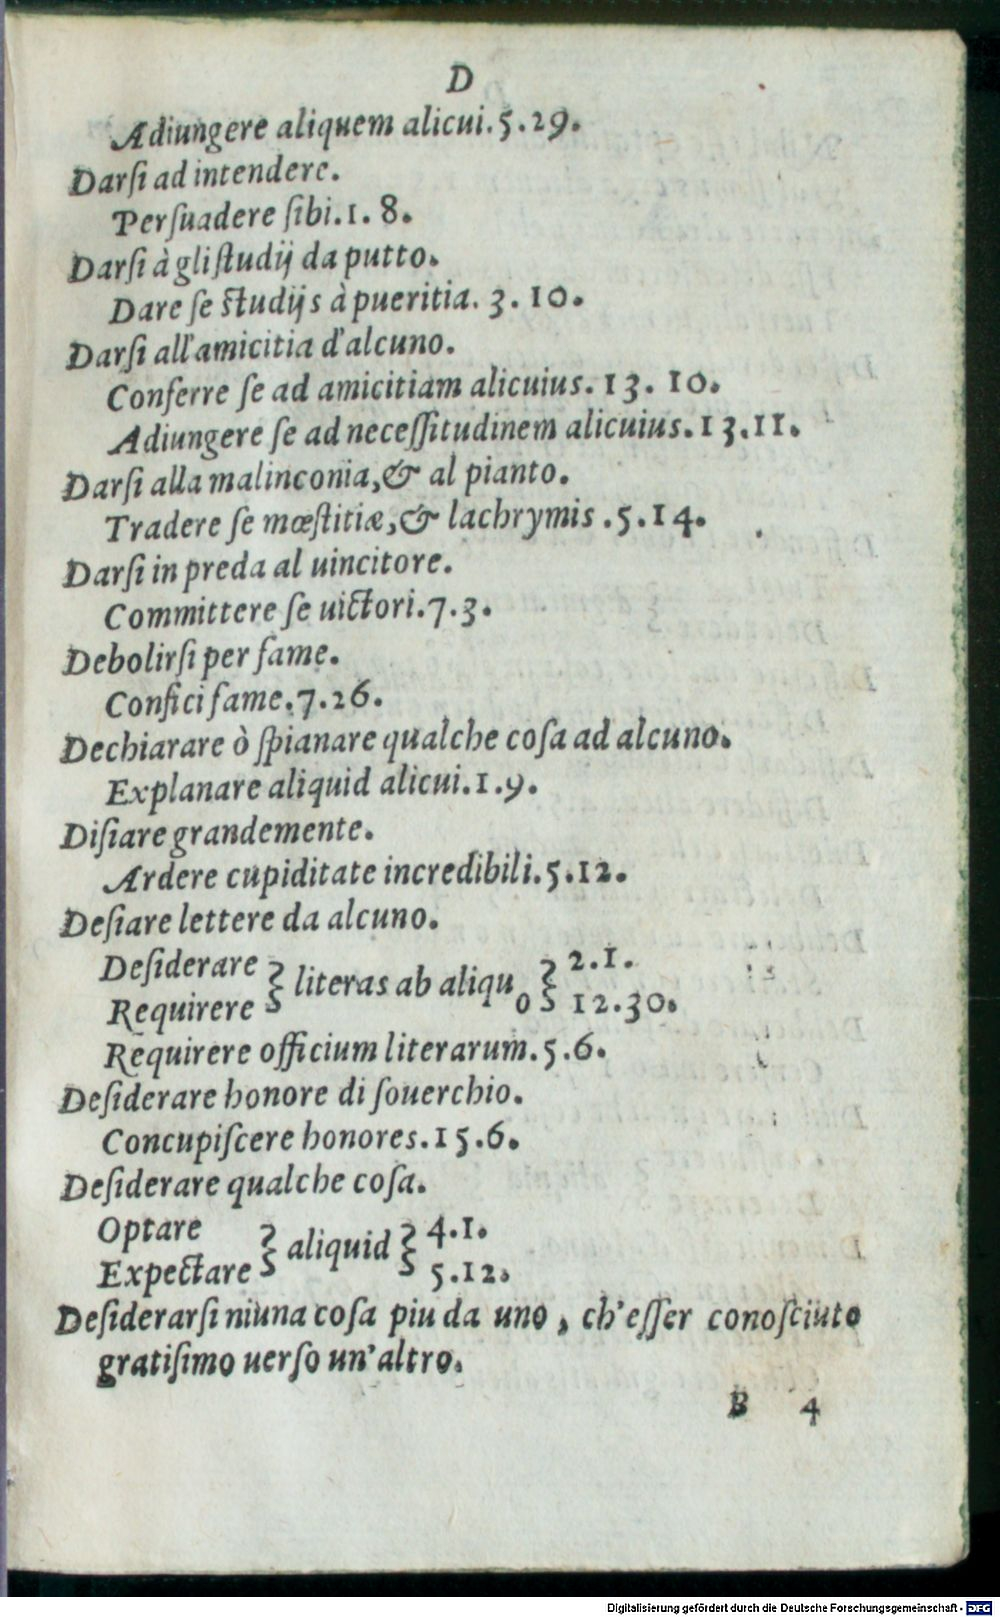 D
Adiungere aliquem alicui.5.29.
Darſi ad intendere.
Perſuadere ſibi.1. 8.
Darſi à gli ſtudij da putto.
Dare ſe ſtudijs à pueritia. 3.10.
Darſi all'amicitia d'alcuno.
Conferre ſe ad amicitiam alicuius. 13. 10.
Adiungere ſe ad neceſſitudinem alicuius.13.11.
Darſi alla malinconia,& al pianto.
Tradere ſe mœſtitiæ,& lachrymis .5.14.
Darſi in preda al uincitore.
Committere ſe uictori.7.3.
Debolirſi per fame.
Confici fame.7.26.
Dechiarare ò ſpianare qualche coſa ad alcuno.
Explanare aliquid alicui.1.9.
Diſiare grandemente.
Ardere cupiditate incredibili.5.12.
Deſiare lettere da alcuno.
Deſiderare } literas ab aliquo } 2.1.
Requirere } 12.30.
Requirere officium literarum.5.6.
Deſiderare honore di ſouerchio.
Concupiſcere honores.15.6.
Deſiderare qualche coſa.
Optare } aliquid } 4.1.
Expectare } 5.12.
Deſiderarſi niuna coſa piu da uno, ch'eſſer conoſciuto
gratiſimo uerſo un'altro.
B 4
Digitalisierung gefördert durch die Deutsche Forschungsgemeinschaft - DFG